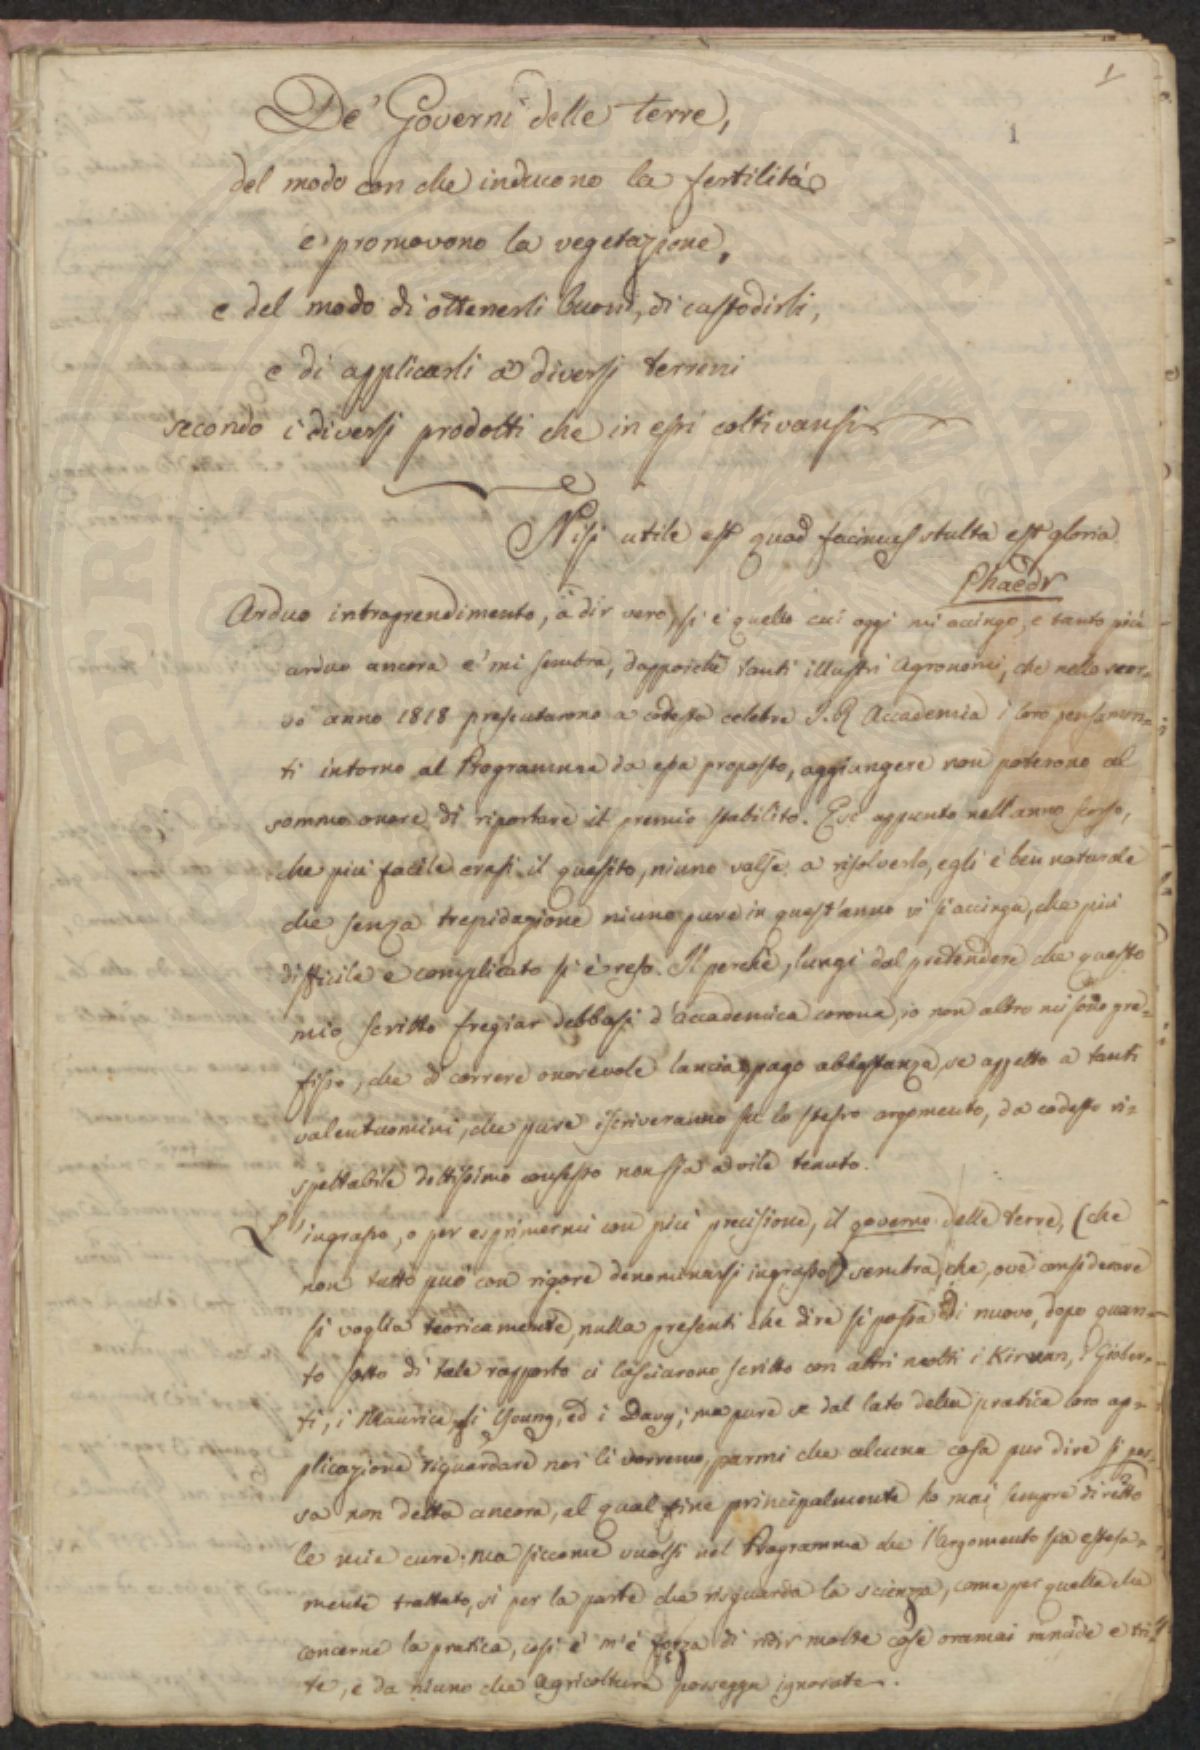 1
1
De' Governi delle terre,
del modo con che inducono la fertilità
e promovono la vegetazione,
e del modo di ottenerli buoni, di custodirli,
e di applicarli a' diversi terreni
secondo i diversi prodotti che in essi coltivansi
Nisi utile est quod facimus stulta est gloria
Phaedr
Arduo intraprendimento, a dir vero, si è quello cui oggi mi accingo, e tanto più
arduo ancora e' mi sembra, dappoichè tanti illustri Agronomi, che nello scor-
so anno 1818 presentarono a codesta celebre I. R. Accademia i loro pensamen-
ti intorno al Programma da essa proposto, aggiungere non poterono al
sommo onore di riportare il premio stabilito. E se appunto nell'anno scorso,
che più facile erasi il quesito, niuno valse a risolverlo, egli è ben naturale
che senza trepidazione niuno pure in quest'anno vi si accinga, che più
difficile e complicato si è reso. Il perchè, lungi dal pretendere che questo
mio scritto fregiar debbasi d'accademica corona, io non altro mi sono pre-
fisso, che di correre onorevole lancia, pago abbastanza, se appetto a tanti
valentuomini, che pure scriveranno su lo stesso argomento, da codesto ri-
spettabile dottissimo consesso non sia a vile tenuto.
L'ingrasso, o per esprimermi con più precisione, il governo delle terre, (che
non tutto può con rigore denominarsi ingrasso) sembra, che, ove considerare
si voglia teoricamente, nulla presenti che dire si possa di nuovo, dopo quan-
to sotto di tale rapporto ci lasciarono scritto con altri molti i Kirwan, i Giober-
ti, i Maurice, gli Young, ed i Davy; ma pure se dal lato della pratica loro ap-
plicazione riguardare noi li vorremo, parmi che alcuna cosa pur dire si pos-
sa non detta ancora, al qual fine principalmente ho mai sempre diretto
le mie cure. Ma siccome vuolsi nel Programma che l'Argomento sia estesa-
mente trattato, sì per la parte che risguarda la scienza, come per quella che
concerne la pratica, così e' m'è forza di ridir molte cose oramai rancide e tri-
te, e da niuno che Agricoltura possegga ignorate.